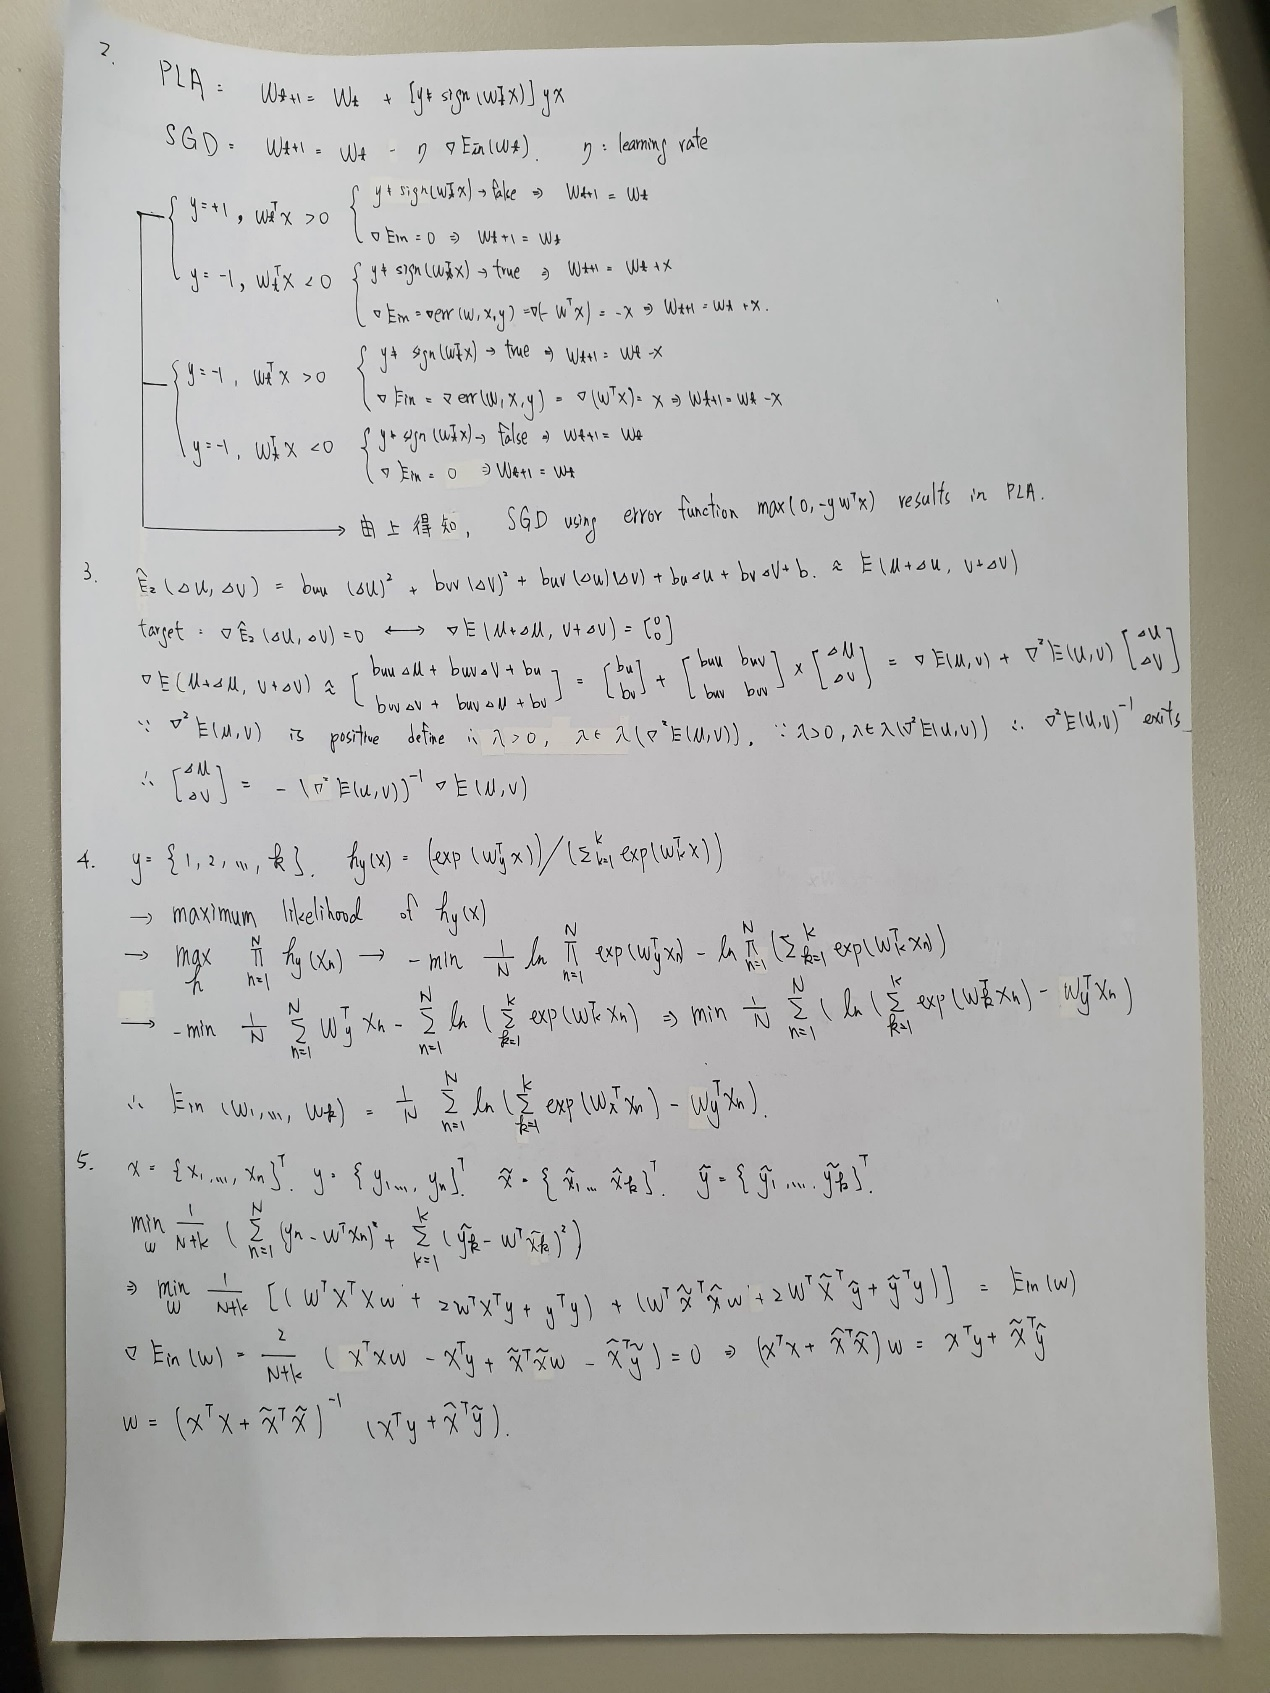 2.
PLA: W_{t+1} = W_t + [y ≠ sign(W_t^T x)] yx
SGD: W_{t+1} = W_t - η ∇Ein(W_t). η: learning rate
y=+1, W_t^T x >0 { y ≠ sign(W_t^T x) → false ⇒ W_{t+1} = W_t
∇Ein = 0 ⇒ W_{t+1} = W_t
y=-1, W_t^T x <0 { y ≠ sign(W_t^T x) → true ⇒ W_{t+1} = W_t + x
∇Ein = ∇err(w,x,y) = ∇(-w^T x) = -x ⇒ W_{t+1} = W_t + x.
y=-1, W_t^T x >0 { y ≠ sign(W_t^T x) → true ⇒ W_{t+1} = W_t - x
∇Ein = ∇err(w,x,y) = ∇(w^T x) = x ⇒ W_{t+1} = W_t - x
y=-1, W_t^T x <0 { y ≠ sign(W_t^T x) → false ⇒ W_{t+1} = W_t
∇Ein = 0 ⇒ W_{t+1} = W_t
→ 由上得知, SGD using error function max(0, -y w^T x) results in PLA.
3. Ê_2(Δu, Δv) = b_{uu}(Δu)^2 + b_{vv}(Δv)^2 + b_{uv}(Δu)(Δv) + b_uΔu + b_vΔv + b. ≈ E(u+Δu, v+Δv)
target: ∇Ê_2(Δu, Δv) = 0 ⟷ ∇E(u+Δu, v+Δv) = [0 0]
∇E(u+Δu, v+Δv) ≈ [b_{uu}Δu + b_{uv}Δv + b_u; b_{vv}Δv + b_{uv}Δu + b_v] = [b_u; b_v] + [b_{uu} b_{uv}; b_{uv} b_{vv}] × [Δu; Δv] = ∇E(u,v) + ∇²E(u,v) [Δu; Δv]
∵ ∇²E(u,v) is positive define ∴ λ>0, λ∈λ(∇²E(u,v)). ∵ λ>0, λ∈λ(∇²E(u,v)) ∴ ∇²E(u,v)^{-1} exits
∴ [Δu; Δv] = -(∇²E(u,v))^{-1} ∇E(u,v)
4. y = {1, 2, ..., k}. h_y(x) = (exp(W_y^T x))/(Σ_{k=1}^{k} exp(W_k^T x))
→ maximum likelihood of h_y(x)
→ max_h Π_{n=1}^{N} h_y(x_n) → -min 1/N ln Π_{n=1}^{N} exp(W_y^T x_n) - ln Π_{n=1}^{N} (Σ_{k=1}^{k} exp(W_k^T x_n))
→ -min 1/N Σ_{n=1}^{N} W_y^T x_n - Σ_{n=1}^{N} ln(Σ_{k=1}^{k} exp(W_k^T x_n) ⇒ min 1/N Σ_{n=1}^{N} (ln(Σ_{k=1}^{k} exp(W_k^T x_n) - W_y^T x_n)
∴ Ein(W_1, ..., W_k) = 1/N Σ_{n=1}^{N} ln(Σ_{k=1}^{k} exp(W_x^T x_n) - W_y^T x_n).
5. x = {x_1, ..., x_n}^T. y = {y_1, ..., y_n}^T. x̃ = {x̃_1 ... x̃_k}^T. ỹ = {ỹ_1, .... ỹ_k}^T.
min_w 1/(N+k) (Σ_{n=1}^{N} (y_n - w^T x_n)^2 + Σ_{k=1}^{k} (ỹ_k - w^T x̃_k)^2)
⇒ min_w 1/(N+k) [(w^T X^T X w + 2w^T X^T y + y^T y) + (w^T x̃^T x̃ w + 2w^T x̃^T ỹ + ỹ^T y)] = Ein(w)
∇Ein(w) = 2/(N+k) (X^T X w - X^T y + x̃^T x̃ w - x̃^T ỹ) = 0 ⇒ (x^T x + x̃^T x̃) w = x^T y + x̃^T ỹ
w = (x^T x + x̃^T x̃)^{-1} (x^T y + x̃^T ỹ).